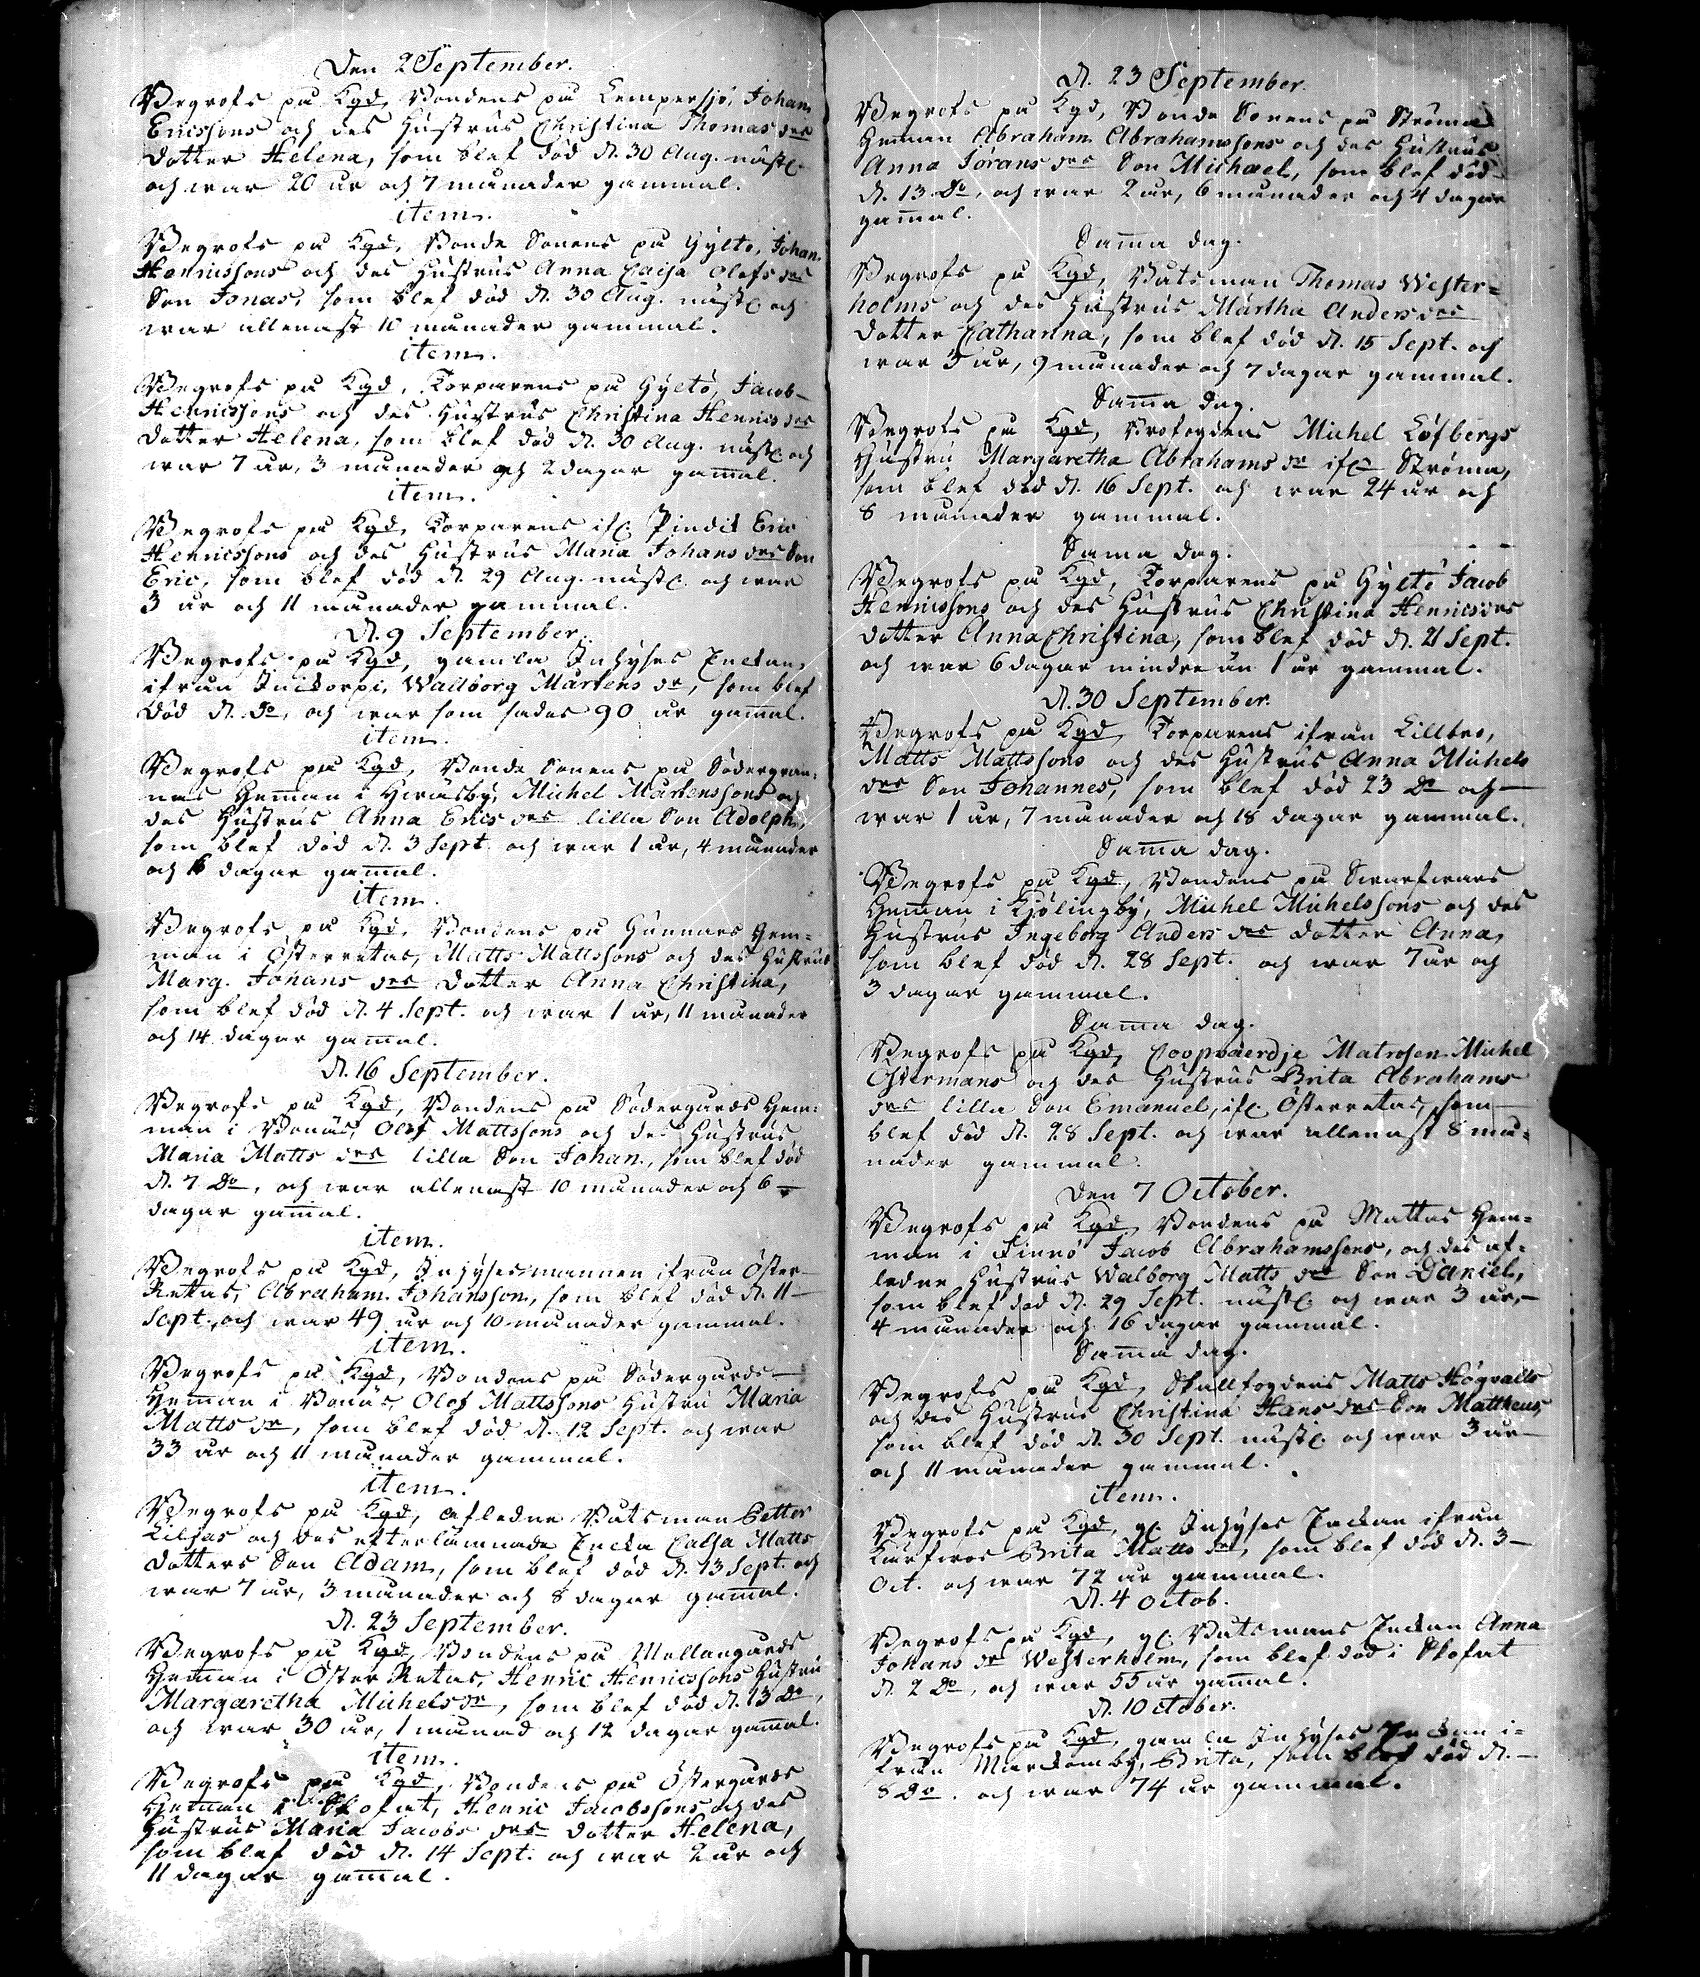 Den 2 September.
Begrofs på Kgd, Bondens på Lempersjö, Johan
Ericssons och des Hustrus Christina Thomas drs
dotter Helena, som blef död d. 30 Aug. näst.
och war 20 år och 7 månader gammal.
item.
Begrofs på Kgd, Bonde Sonens på Gyltö, Johan
Henricssons och des Hustrus Anna Caisa Olofs drs
Son Jonas, som blef död d. 30 Aug. näst. och
war allenast 10 månader gammal.
item.
Begrofs på Kgd, Torparens på Gyltö, Jacob
Henricssons och des Hustrus Christina Henrics drs
dotter Helena, som blef död d. 30 Aug. näst. och
war 7 år, 3 månader och 2 dagar gamal.
item.
Begrofs på Kgd, Torparens if. Pindik Eric
Henricssons och des Hustrus Maria Johans drs Son
Eric, som blef död d. 29 Aug. näst. och war
3 år och 11 månader gammal.
d. 9 September.
Begrofs på Kgd, gamla Inhyses Enckan
ifrån Wallborg Mårtens dr, som blef
död d. do, och war som sades 90 år gamal.
item.
Begrofs på Kgd, Bonde Sonens på Södergran-
nas Heman i Hiraisby, Michel Mårtenssons och
des Hustrus Anna Erics drs lilla Son Adolph,
som blef död d. 3 Sept. och war 1 år, 4 månader
och 16 dagar gamal.
item.
Begrofs på Kgd, Bondens på Gunnars Hem-
man i Österretais, Matts Mattssons och des Hustrus
Marg. Johans drs dotter Anna Christina,
som blef död d. 4 Sept. och war 1 år, 11 månader
och 14 dagar gamal.
d. 16 September.
Begrofs på Kgd, Bondens på Södergårds Hem-
man i Bonäs, Olof Mattssons och des Hustrus
Maria Matts drs lilla Son Johan, som blef död
d. 7 do, och war allenast 10 månader och 6
dagar gamal.
item.
Begrofs på Kgd, Inhyses mannen ifrån Öster-
Retais, Abraham Johansson, som blef död d. 11
Sept., och war 49 år och 10 månader gammal.
item.
Begrofs på Kgd, Bondens på Södergårds
Heman i Bonäs, Olof Mattssons Hustru Maria
Matts dr, som blef död d. 12 Sept. och war
33 år och 11 månader gammal.
item.
Begrofs på Kgd, afledne Båtsman Petter
Liljas och des efterlämnade Encka Caisa Matts
dotters Son Adam, som blef död d. 13 Sept. och
war 7 år, 3 månader och 8 dagar gamal.
d. 23 September.
Begrofs på Kgd, Bondens på Mellangårds
Heman i Öster Retais, Henric Henricssons Hustru
Margaretha Michels dr, som blef död d. 13 do,
och war 30 år, 1 månad och 12 dagar gamal.
item.
Begrofs på Kgd, Bondens på Östergårds
Heman i Skofat, Henric Jacobssons och des
Hustrus Maria Jacobs drs dotter Helena,
som blef död d. 14 Sept. och war 2 år och
11 dagar gamal.
d. 23 September.
Begrofs på Kgd, Bonde Sonens på Ströma
Heman Abraham Abrahamssons och des Hustrus
Anna Jörans drs Son Michael, som blef död
d. 13 do, och war 2 år, 6 månader och 4 dagar
gamal.
Sama dag.
Begrofs på Kgd, Båtsman Thomas Wester-
holms och des Hustrus Märtha Anders drs
dotter Catharina, som blef död d. 15 Sept. och
war 3 år, 9 månader och 7 dagar gammal.
Sama dag.
Begrofs på Kgd, Brofogdens Michel Löfbergs
Hustru Margaretha Abrahams dr ifr. Ströma,
som blef död d. 16 Sept. och war 24 år och
8 månader gammal.
Sama dag.
Begrofs på Kgd, Torparens på Gyltö Jacob
Henricssons och des Hustrus Christina Henrics drs
dotter Anna Christina, som blef död d. 21 Sept.
och war 6 dagar mindre än 1 år gammal.
d. 30 September.
Begrofs på Kgd, Torparens ifrån Lillbro,
Matts Mattssons och des Hustrus Anna Michels
drs Son Johannes, som blef död 23 do och
war 1 år, 7 månader och 18 dagar gammal.
Sama dag.
Begrofs på Kgd, Bondens på Swarfwars
Heman i Kjölingby, Michel Michelssons och des
Hustrus Ingeborg Anders drs dotter Anna,
som blef död d. 28 Sept. och war 7 år och
3 dagar gammal.
Sama dag.
Begrofs på Kgd, Coopvaerdje Matrosen Michel
Östermans och des Hustrus Brita Abrahams
drs lilla Son Emanuel, if. Österretais, som
blef död d. 28 Sept. och war allenast 8 må-
nader gammal.
Den 7 October.
Begrofs på Kgd, Bondens på Mattas Hem-
man i Finnö Jacob Abrahamssons, och des af-
ledne Hustrus Walborg Matts drs Son Daniel,
som blef död d. 29 Sept. näst. och war 3 år,
4 månader och 16 dagar gammal.
Sama dag.
Begrofs på Kgd, Skallfogdens Matts Högvalls
och des Hustrus Christina Hans drs Son Mattheus,
som blef död d. 30 Sept. näst. och war 3 år
och 11 månader gammal.
item.
Begrofs på Kgd, gl. Inhyses Enckan ifrån
Kärfwos Brita Matts dr, som blef död d. 3
Oct. och war 72 år gammal.
d. 4 Octob.
Begrofs på Kgd, gl. Båtsmans Enckan Anna
Johans dr Westerholm, som blef död i Skofat
d. 2 do, och war 55 år gamal.
d. 10 October.
Begrofs på Kgd, gamla Inhyses Enckan i-
från Marskomby, Brita, som blef död d.
8 do. och war 74 år gammal.